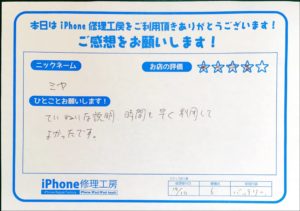 本日は iPhone 修理工房をご利用頂きありがとうございます!
ご感想をお願いします!
ニックネーム
お店の評価
ミヤ
ひとことお願いします!
ていねいな説明 時間も早く利用して
よかったです。
iPhone修理工房
6
バッテリー